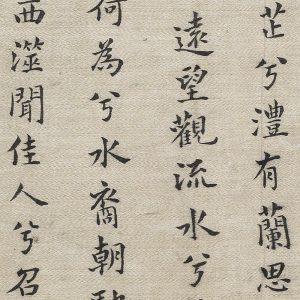 芷兮澧有蘭思
遠望觀流水兮
何為兮水裔朝馳
西澨聞佳人兮召